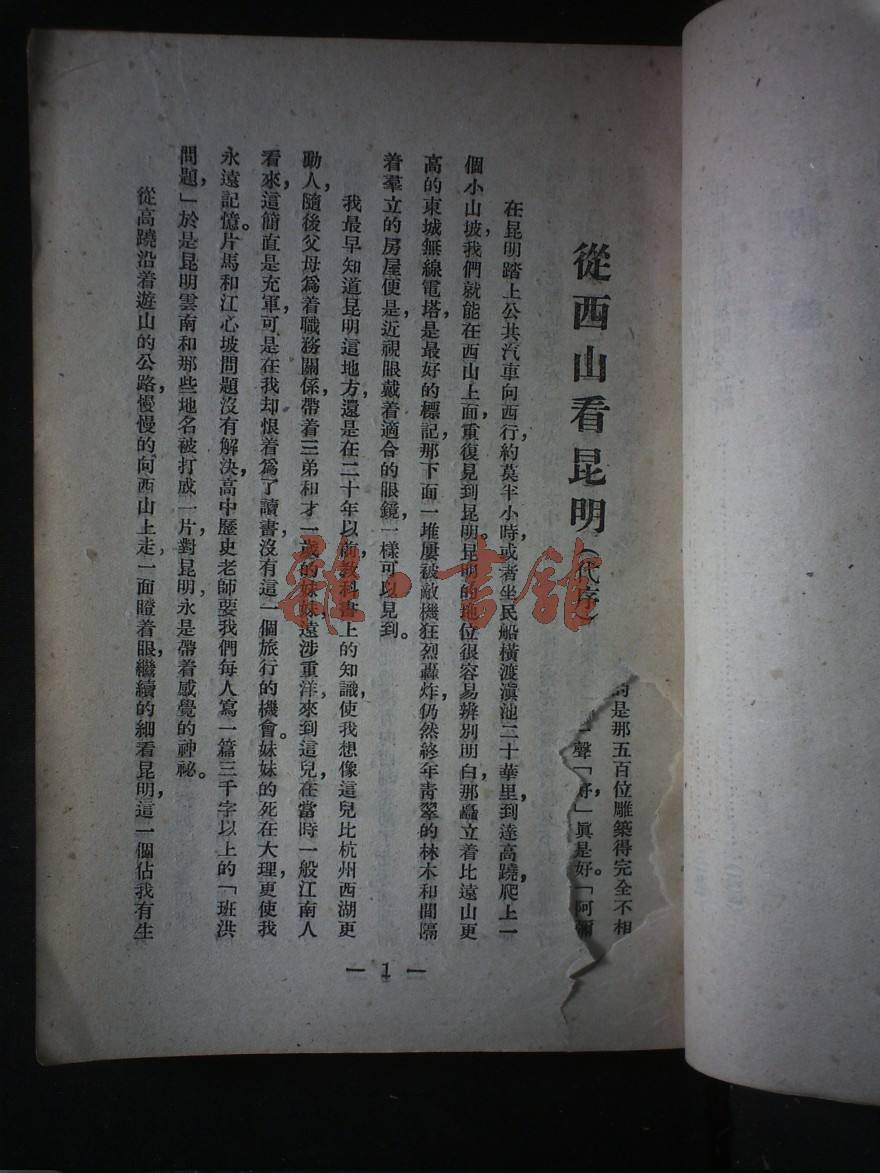 的是那五百位雕築得完全不相
一聲「好」眞是好。「阿彌
從西山看昆明(代序)
在昆明踏上公共汽車向西行,約莫半小時,或者坐民船橫渡滇池二十華里,到達高蹺,爬上一
個小山坡,我們就能在西山上面,重復見到昆明。昆明的地位很容易辨別明白,那矗立着比遠山更
高的東城無線電塔,是最好的標記,那下面一堆屢被敵機狂烈轟炸,仍然終年青翠的林木和間隔
着羣立的房屋便是,近視眼戴着適合的眼鏡,一樣可以見到。
我最早知道昆明這地方,還是在二十年以前,教科書上的知識,使我想像這兒比杭州西湖更
動人,隨後父母爲着職務關係,帶着三弟和才一歲的妹妹,遠涉重洋,來到這兒,在當時一般江南人
看來,這簡直是充軍,可是在我却恨着爲了讀書,沒有這一個旅行的機會。妹妹的死在大理,更使我
永遠記憶。片馬和江心坡問題沒有解決,高中歷史老師要我們每人寫一篇三千字以上的「班洪
問題」,於是昆明雲南和那些地名被打成一片,對昆明,永是帶着感覺的神祕。
從高蹺沿着遊山的公路,慢慢的向西山上走,一面瞪着眼,繼續的細看昆明,這一個佔我有生
— 1 —
雜·書館